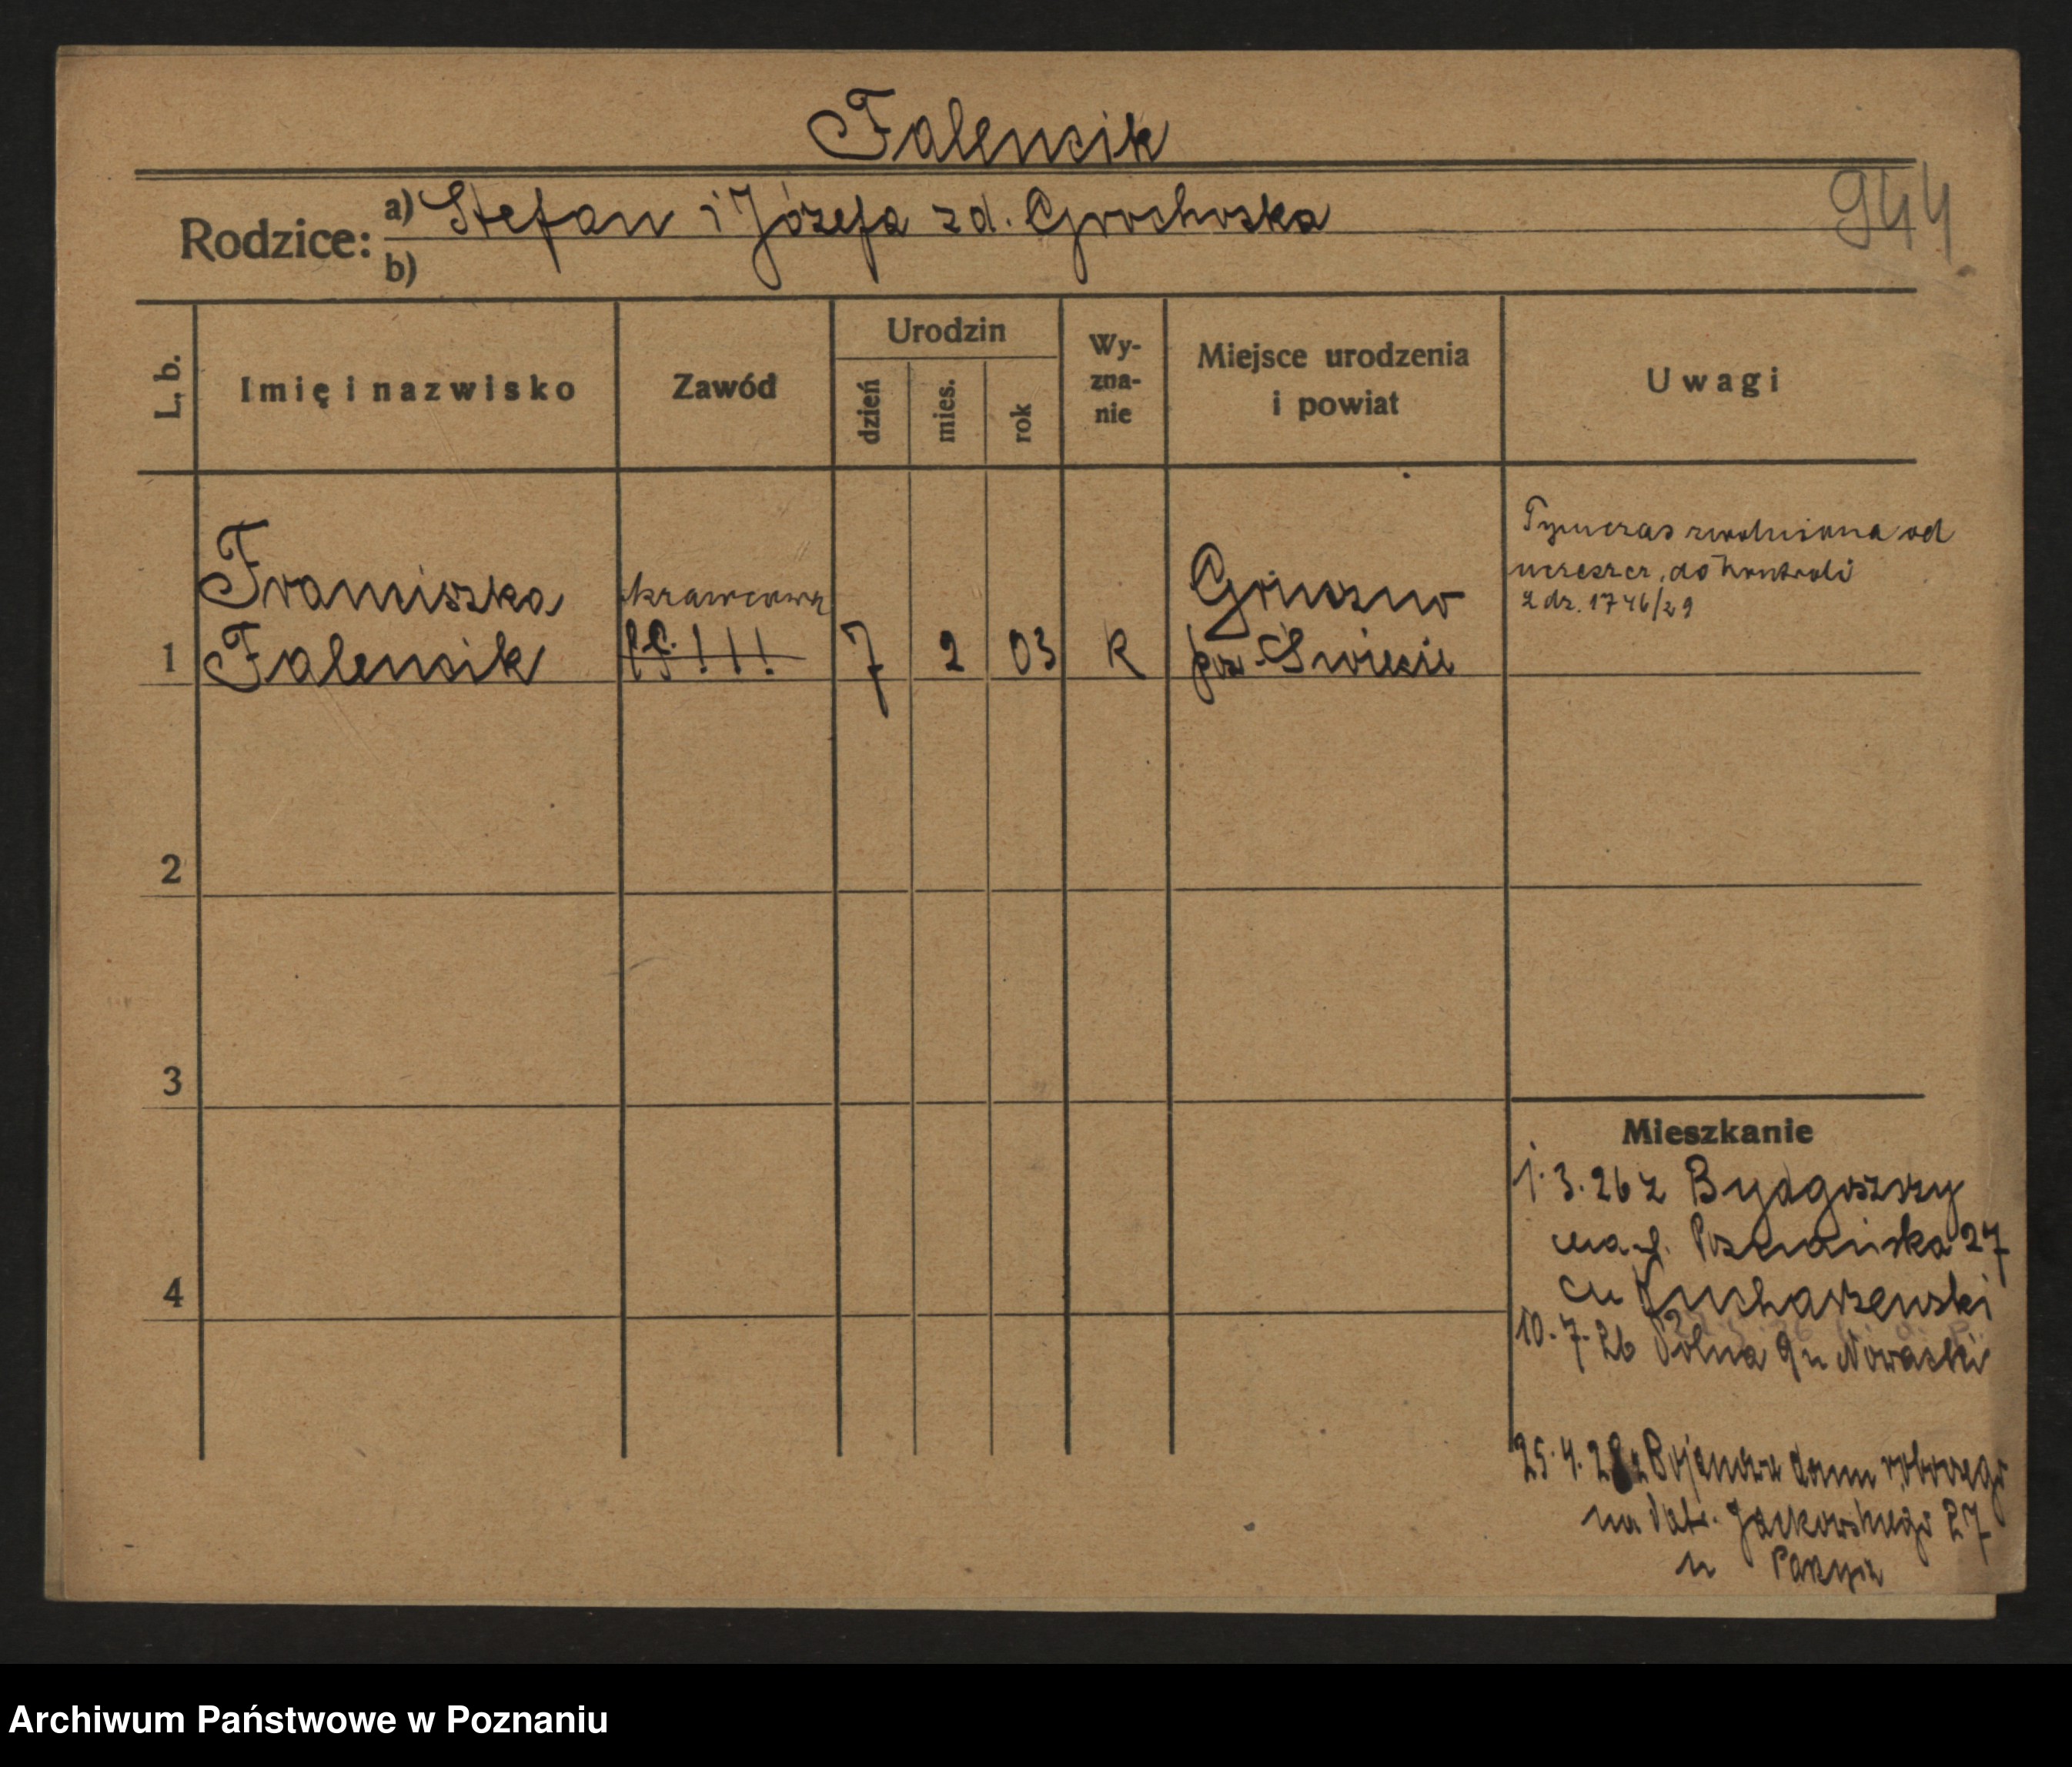 Falencik
944
Rodzice: a) Stefan i Józefa zd. Grochoska
b)
L. b.
Imię i nazwisko
Zawód
Urodzin
dzień
mies.
rok
Wy-
zna-
nie
Miejsce urodzenia
i powiat
Uwagi
Franciszka
Falencik
krawcowa
1
7
2
03
K
Gruczno
pow. Swiecie
Tymczas zwolniona od
do kontroli
z dz. 1746/29
2
3
4
Mieszkanie
1.3.26 z Bydgoszczy
na ul. Poznańska 27
u Kucharzewski
10.7.26 Polna 9 u Nowacki
25.4.28 z Bojanowa domu roboczego
na Jackowskiego 27
u
Archiwum Państwowe w Poznaniu